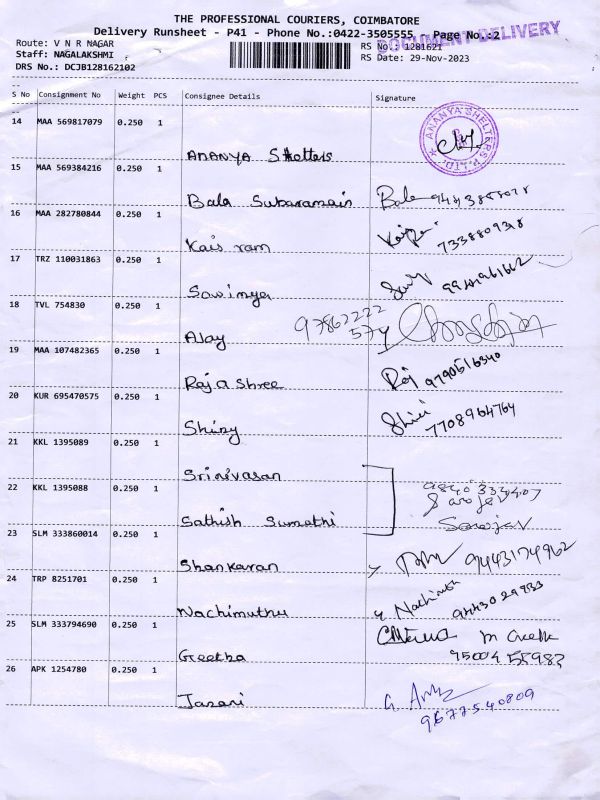 THE PROFESSIONAL COURIERS, COIMBATORE
Delivery Runsheet - P41 - Phone No.:0422-3505555 - Page No.:2
DOCUMENT DELIVERY
Route: V N R NAGAR
Staff: NAGALAKSHMI
DRS No.: DCJB128162102
RS No.: 1281621
RS Date: 29-Nov-2023
S No Consignment No Weight PCS Consignee Details Signature
14 MAA 569817079 0.250 1
ANANYA Shelters
ANANYA SHELTERS P. LTD.
15 MAA 569384216 0.250 1
Bala Subaramain Bala
16 MAA 282780844 0.250 1
Kais ram 7338809318
17 TRZ 110031863 0.250 1
Sowimya
18 TVL 754830 0.250 1
Ajay 97862222 574
19 MAA 107482365 0.250 1
Raja Shree Raj 9790516340
20 KUR 695470575 0.250 1
Shiny 7708964764
21 KKL 1395089 0.250 1
Srinivasan
22 KKL 1395088 0.250 1
Sathish Sumathi
Saroja V
23 SLM 333860014 0.250 1
Shankaran 9443174962
24 TRP 8251701 0.250 1
Nachimuthu 9443029933
25 SLM 333794690 0.250 1
Geetha
26 APK 1254780 0.250 1
Janani
9677540809